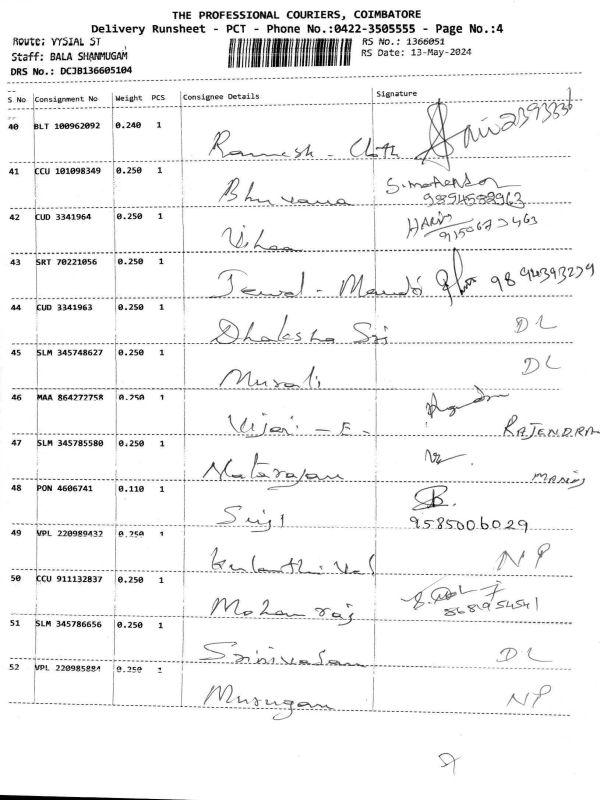 THE PROFESSIONAL COURIERS, COIMBATORE
Delivery Runsheet - PCT - Phone No.:0422-3505555 - Page No.:4
Route: VYSIAL ST
RS No.: 1366051
Staff: BALA SHANMUGAM
RS Date: 13-May-2024
DRS No.: DCJB136605104
S No Consignment No Weight PCS Consignee Details Signature
40 BLT 100962092 0.240 1
Ramesh - Cloth
41 CCU 101098349 0.250 1
Bhuvana
9894588963
42 CUD 3341964 0.250 1
HARIS
43 SRT 70221056 0.250 1
Jewal - 
44 CUD 3341963 0.250 1
Dhaksha Sri DL
45 SLM 345748627 0.250 1
Murali DL
46 MAA 864272758 0.250 1
Vijai - E - RAJENDRA
47 SLM 345785580 0.250 1
Natarajan
48 PON 4606741 0.110 1
9585006029
49 VPL 220989432 0.250 1
NP
50 CCU 911132837 0.250 1
Mohan raj
51 SLM 345786656 0.250 1
Srinivasan DL
52 VPL 220985884 0.250 1
Murugan NP